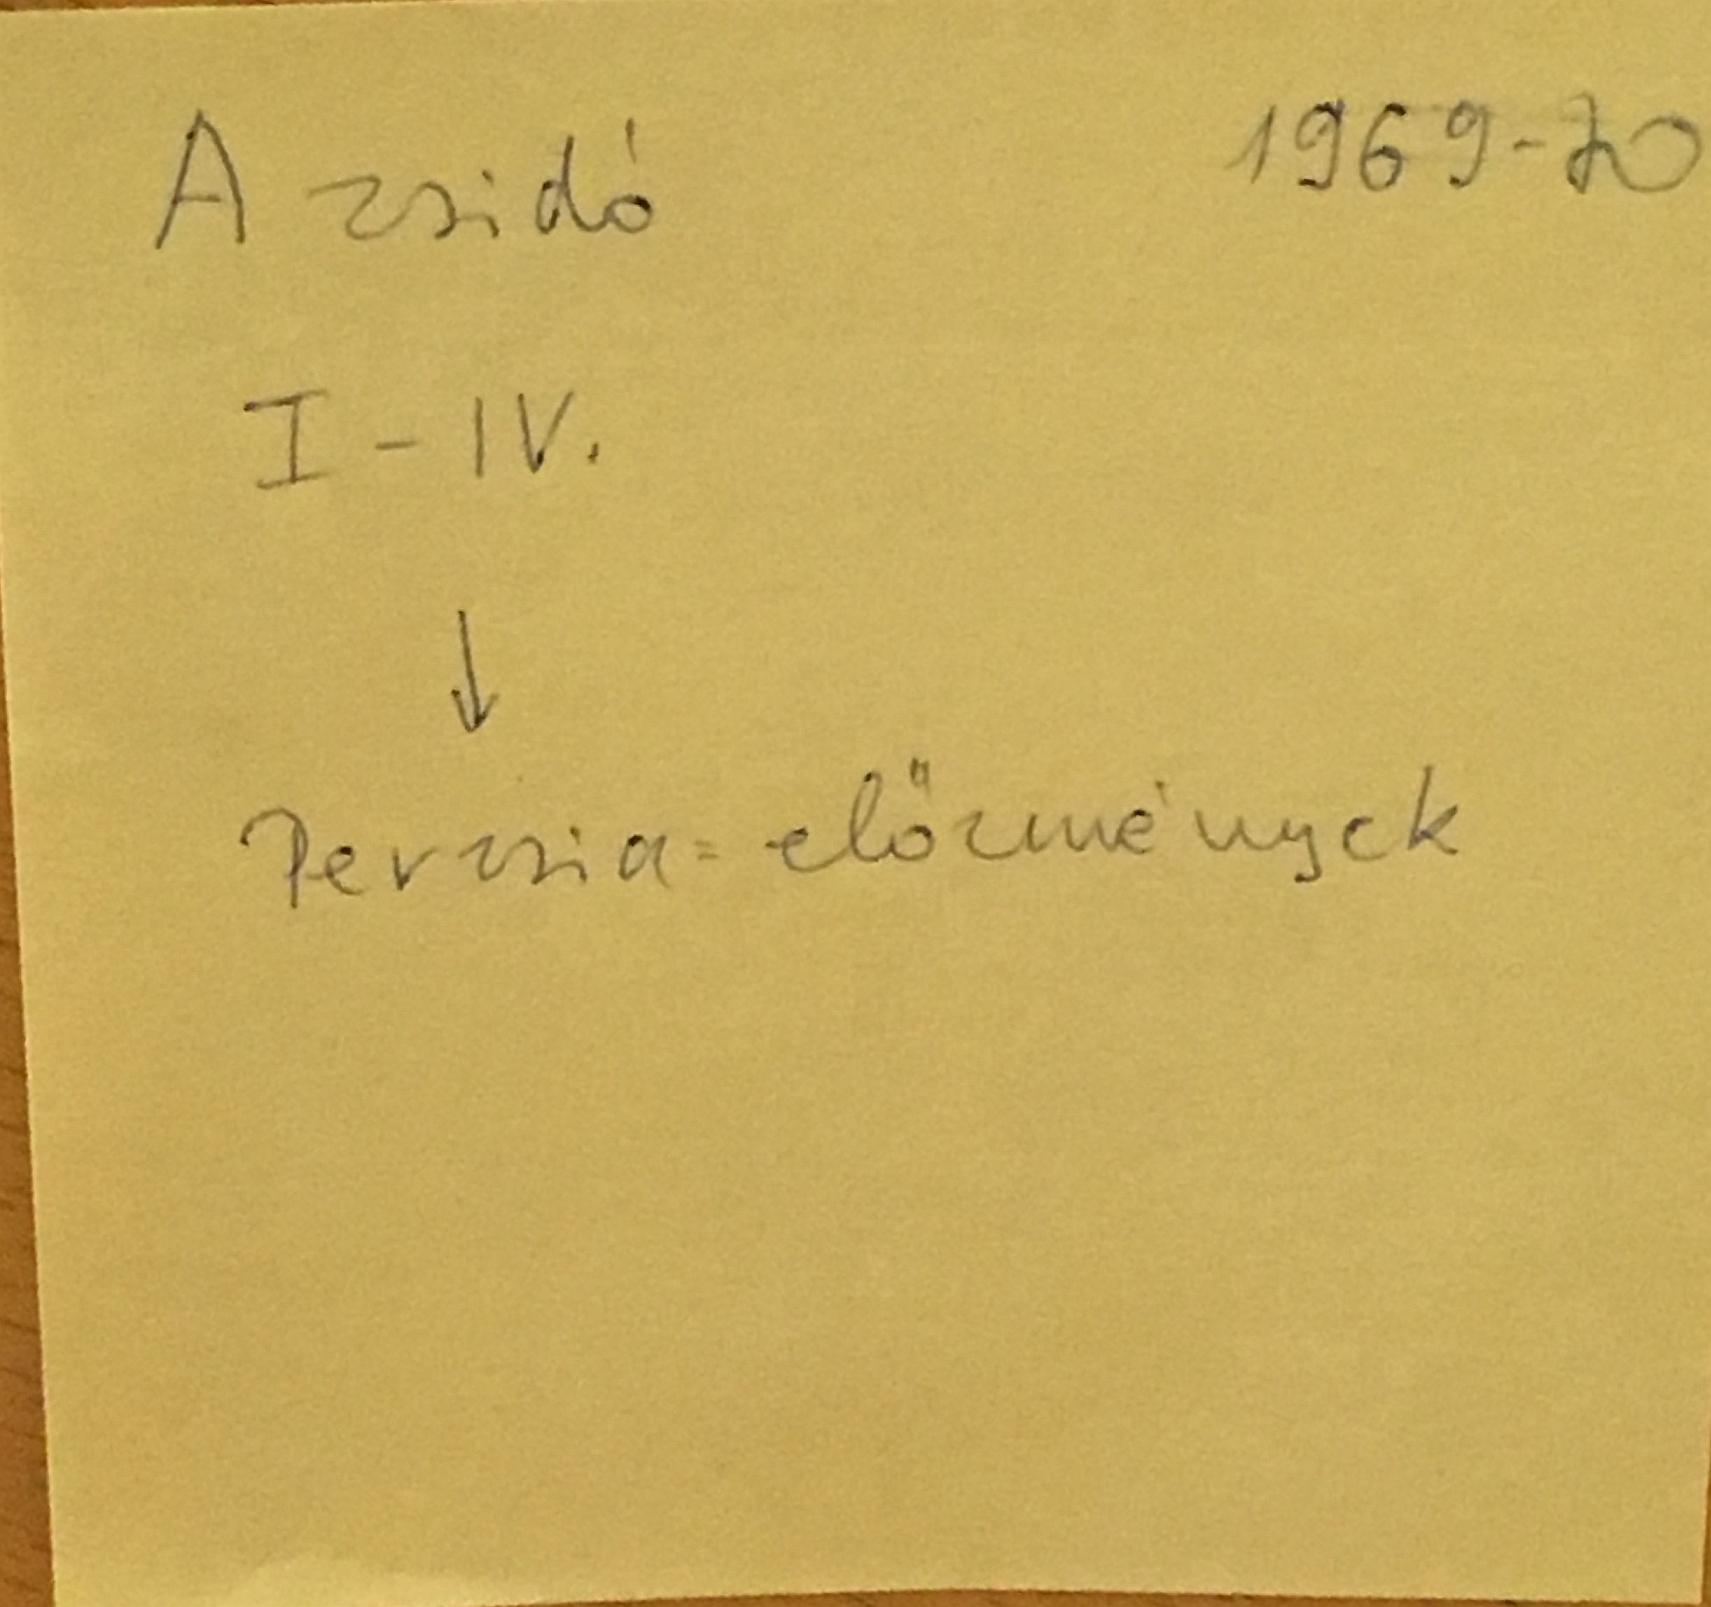 A zsidó 1969-70
I - IV.
↓
Perzsia = előzmények